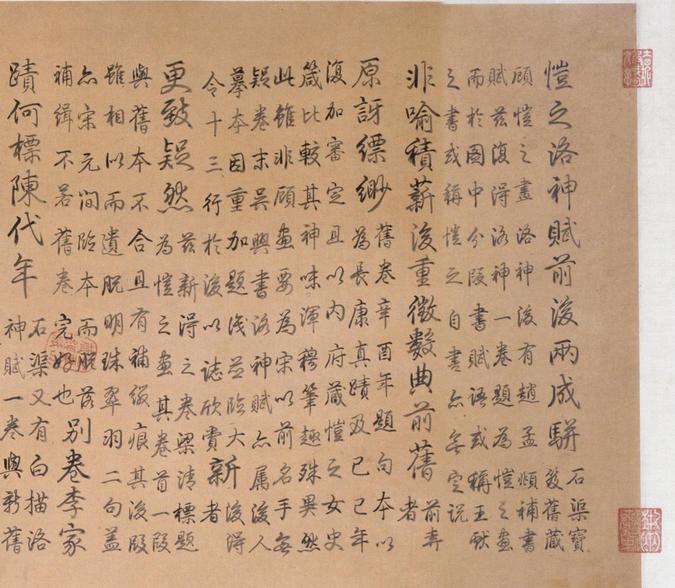 愷之洛神賦前後兩成駢
石渠寶
笈舊藏
顧愷之畫洛神後有趙孟頫補書
賦茲復得洛神一卷題為愷之畫
而於圖中分段書賦語或稱王獻
之書或稱愷之自書亦無定說
非喻積薪後重徵數典前舊
前弆
者
原訝縹緲
舊卷辛酉年題句本以
為長康真蹟及己巳年
復加審定且以內府藏愷之女史
箴比較其神味渾穆筆趣殊異然
此雖非顧畫要為宋以前名手無
疑卷末吳興書洛神賦亦属後人
摹本因重加題識並臨大
令十三行於後以誌欣賞
新
後得
者
更致疑然
茲新得之卷梁清標題
為愷之畫其卷首一段
與舊本不合且有補綴痕其後段
雖相似而遺脫明珠翠羽二句蓋
亦宋元間臨本而脫落
補緝不若舊卷完好也
別卷李家
蹟何標陳代年
石渠又有白描洛
神賦一卷與新舊